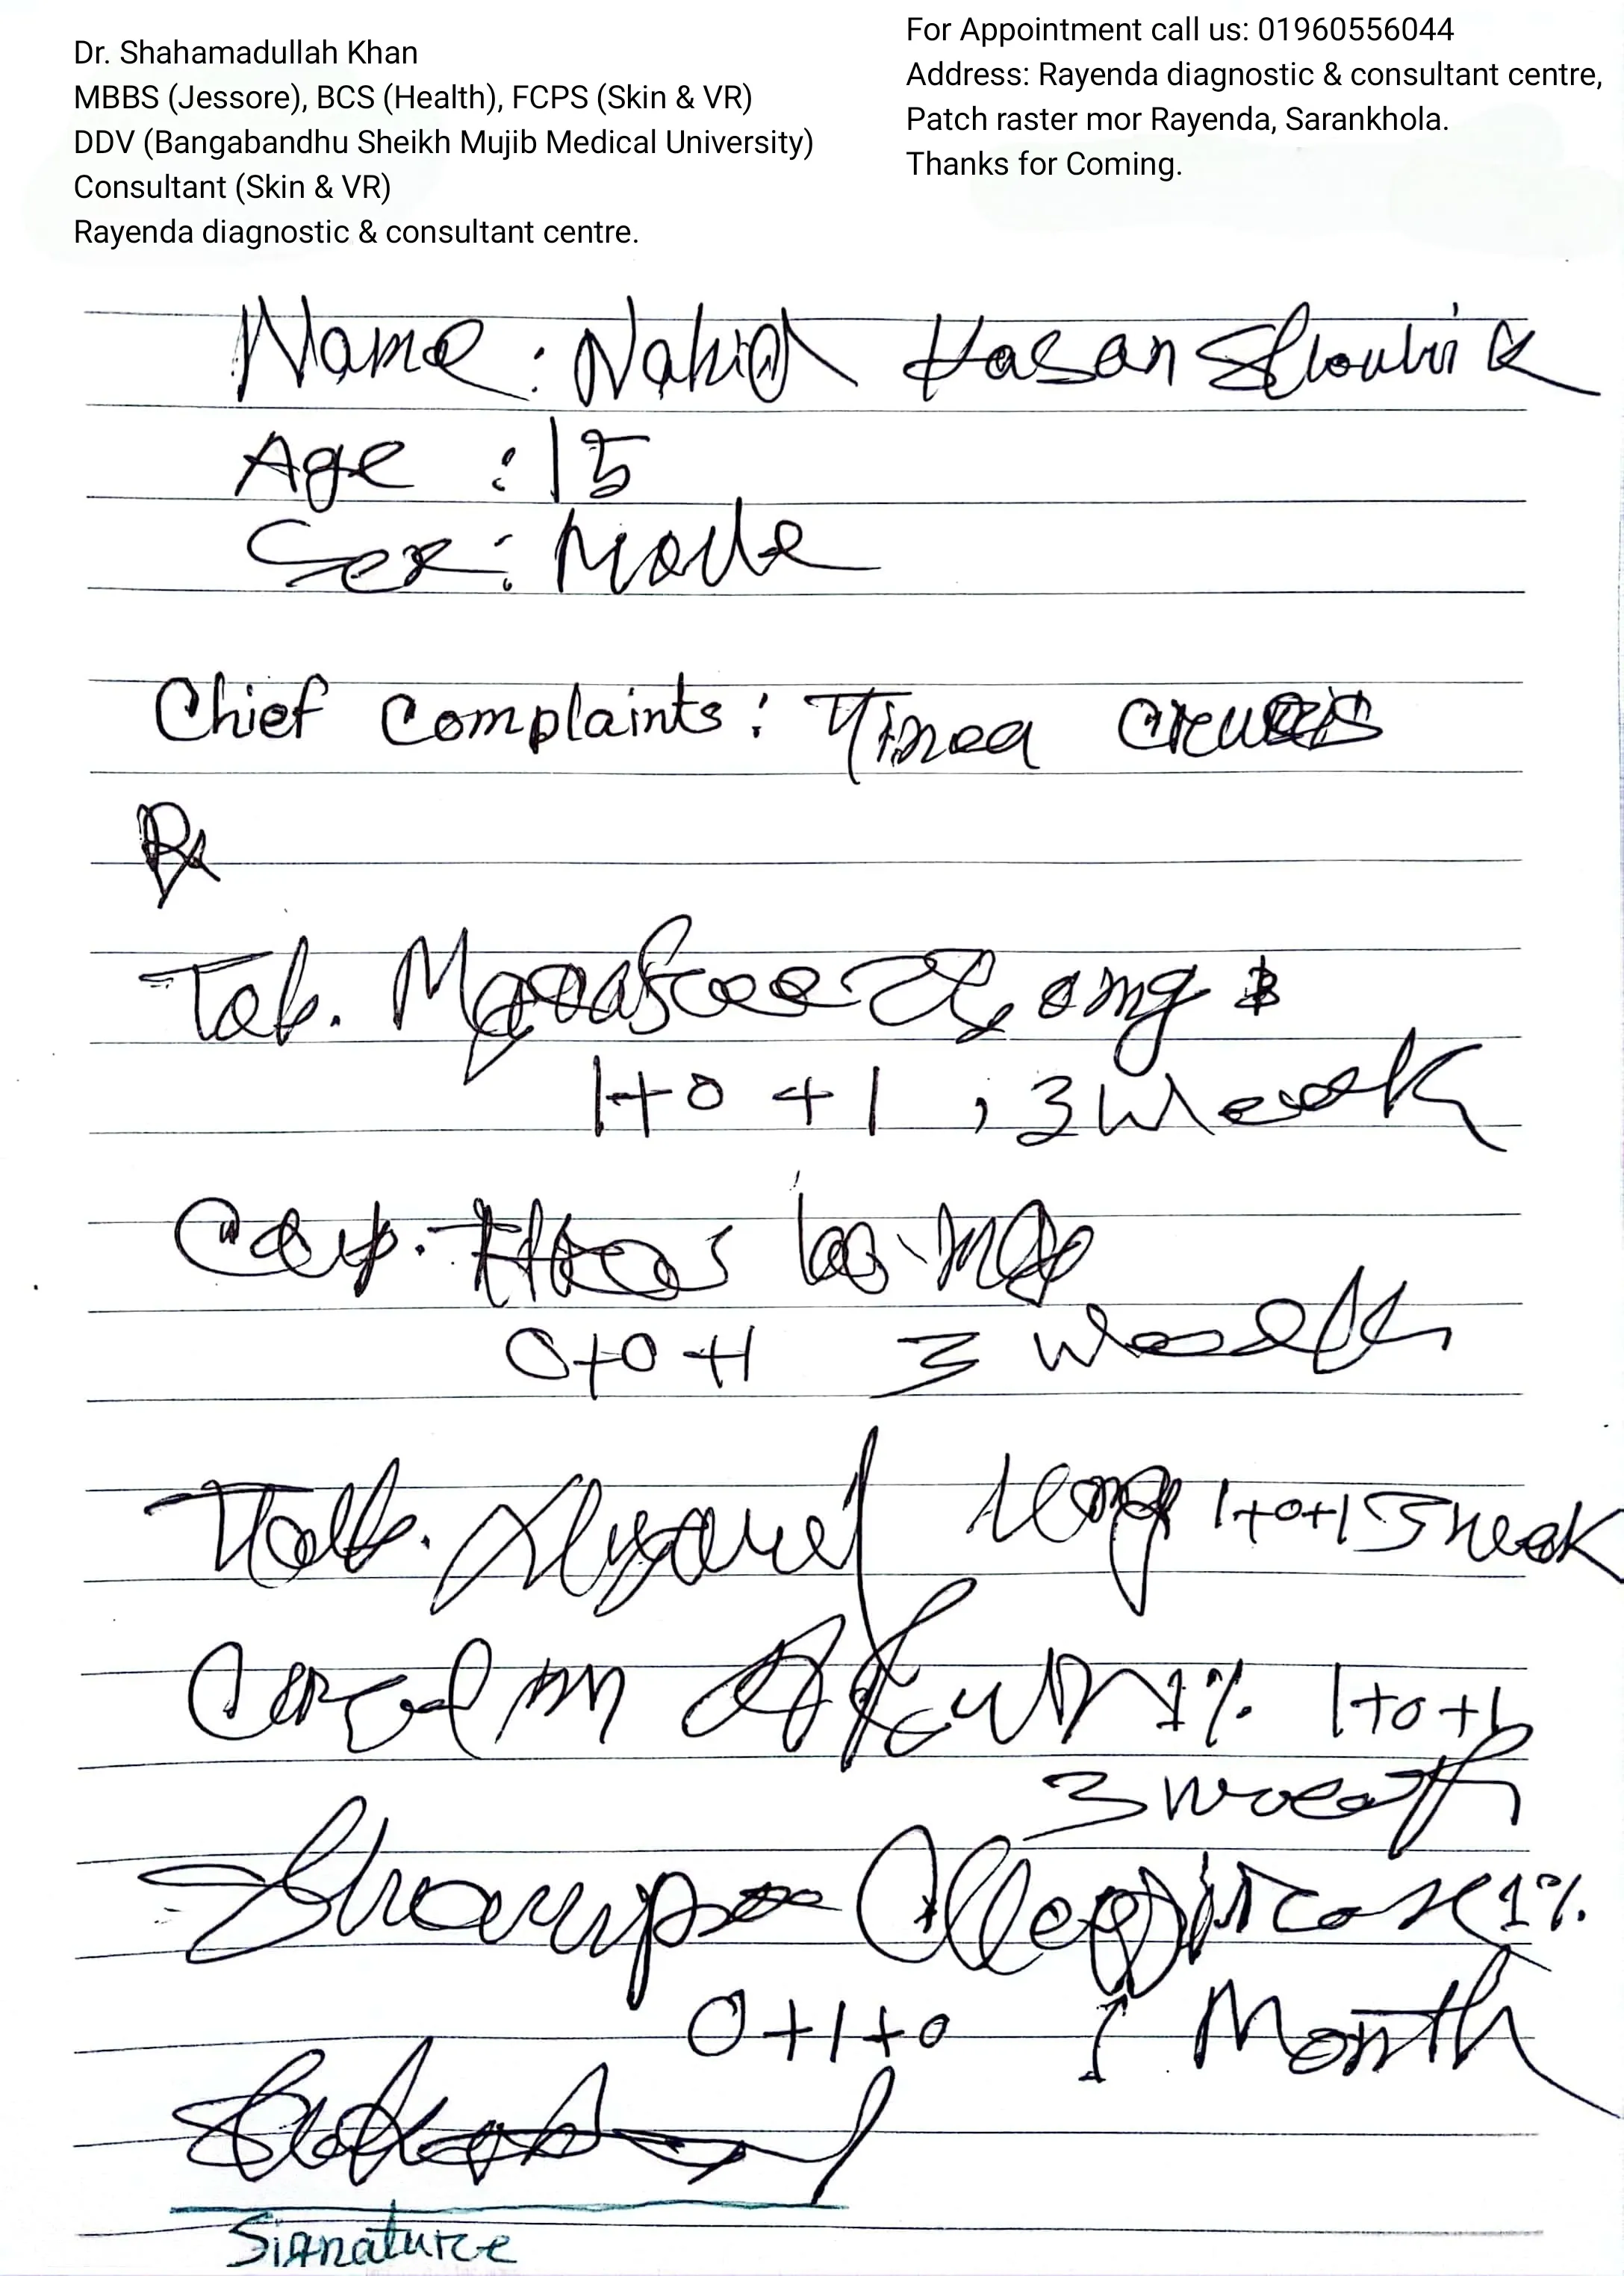 Dr. Shahamadullah Khan
MBBS (Jessore), BCS (Health), FCPS (Skin & VR)
DDV (Bangabandhu Sheikh Mujib Medical University)
Consultant (Skin & VR)
Rayenda diagnostic & consultant centre.
For Appointment call us: 01960556044
Address: Rayenda diagnostic & consultant centre,
Patch raster mor Rayenda, Sarankhola.
Thanks for Coming.
Name : Nahid Hasan Shouvik
Age : 15
Sex : Male
Chief Complaints : Tinea cruris
Rx
Tab. mg
1+0+1 , 3 Week
Cap.
0+0+1 3 Week
Tab. 1+0+1 3 week
Cream 1% 1+0+1
3 week
Shampoo 1%
0+1+0 1 Month
Signature